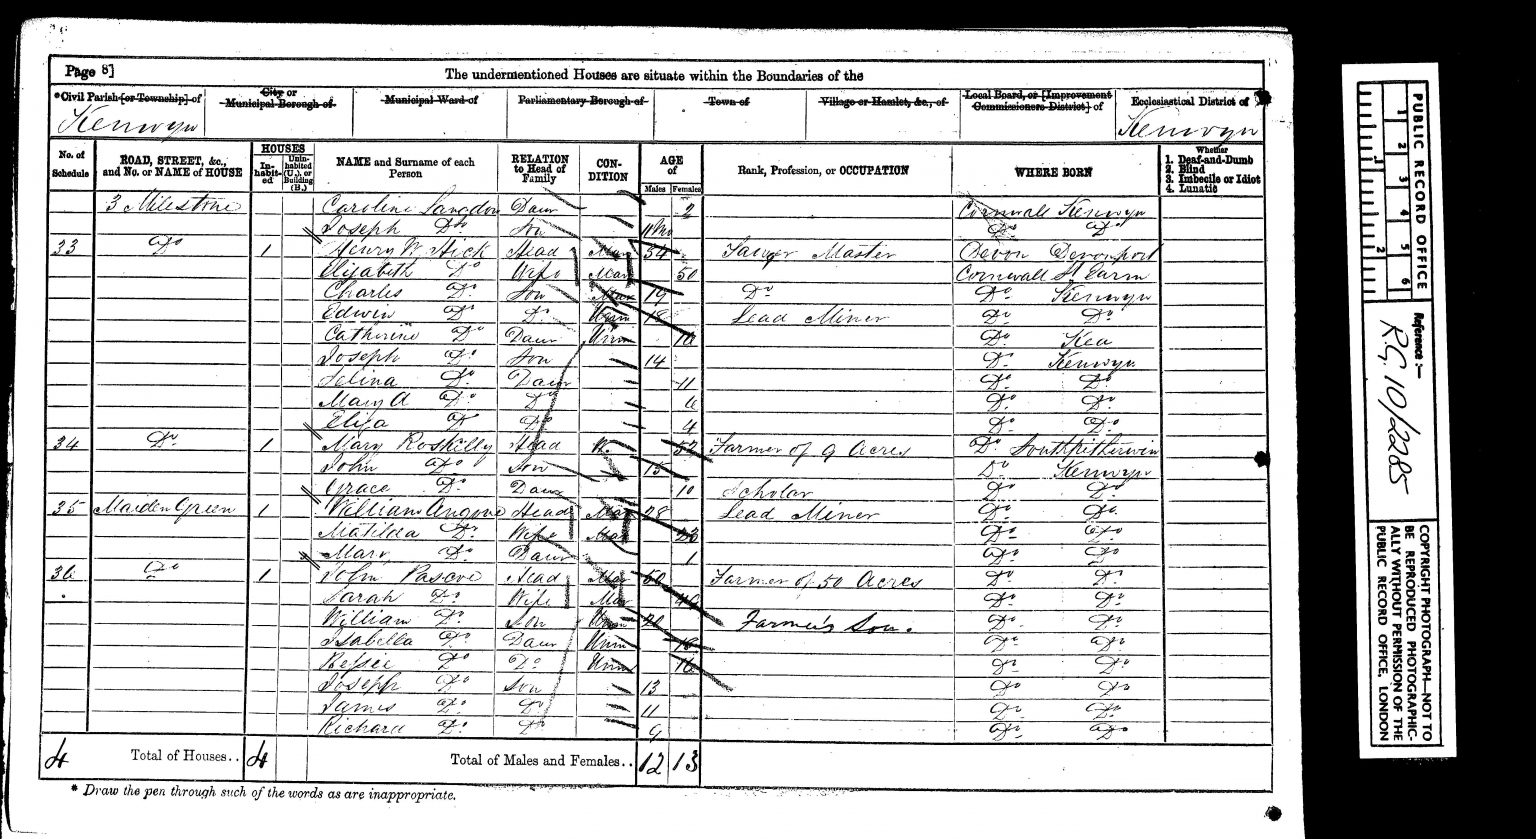 Page 8]
The undermentioned Houses are situate within the Boundaries of the
*Civil Parish [or Township] of
City or Municipal Borough of
Municipal Ward of
Parliamentary Borough of
Town of
Village or Hamlet, &c., of
Local Board, or [Improvement Commissioners District] of
Ecclesiastical District of
Kenwyn
Kenwyn
No. of Schedule
ROAD, STREET, &c., and No. or NAME of HOUSE
HOUSES
In-habit-ed
Unin-habited (U.), or Building (B.)
NAME and Surname of each Person
RELATION to Head of Family
CON-DITION
AGE of
Males
Females
Rank, Profession, or OCCUPATION
WHERE BORN
Whether
1. Deaf-and-Dumb
2. Blind
3. Imbecile or Idiot
4. Lunatic
3 Milestone Caroline Langdon Daur 2 Cornwall Kenwyn
Joseph Do Son 11 Mo Do Do
33 Do 1 Henry W. Hick Head Mar 54 Sawyer Master Devon Devonport
Elizabeth Do Wife Mar 50 Cornwall St Earm
Charles Do Son 19 Do Do Kenwyn
Edwin Do Do Unm 18 Lead Miner Do Do
Catherine Do Daur Unm Do Kea
Joseph Do Son 14 Do Kenwyn
Selina Do Daur 11 Do Do
Mary A Do Do Do Do
Eliza Do Do 4 Do Do
34 Do 1 Mary Roskilly Head W. Farmer of 9 Acres Do Southpitherwin
John Do Son 15 Do Kenwyn
Grace Do Daur 10 Scholar Do Do
35 Maiden Green 1 William Angove Head Mar 28 Lead Miner Do Do
Matilda Do Wife Mar Do Do
Mary Do Daur 1 Do Do
36 Do 1 John Pascoe Head Mar Farmer of 50 Acres Do Do
Sarah Do Wife Mar Do Do
William Do Son Unm 20 Farmer's Son. Do Do
Isabella Do Daur Unm 18 Do Do
Bessie Do Do Unm 16 Do Do
Joseph Do Son 13 Do Do
James Do Do 11 Do Do
Richard Do Do 9 Do Do
4 Total of Houses.. 4 Total of Males and Females.. 12 13
* Draw the pen through such of the words as are inappropriate.
PUBLIC RECORD OFFICE
1 2 3 4 5 6
1 2
Reference:-
R.G. 10/2285
COPYRIGHT PHOTOGRAPH—NOT TO
BE REPRODUCED PHOTOGRAPHIC-
ALLY WITHOUT PERMISSION OF THE
PUBLIC RECORD OFFICE, LONDON